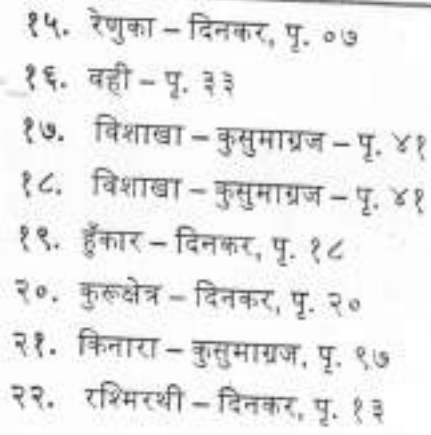 १५. रेणुका – दिनकर, पृ. ०७
१६. वही – पृ. ३३
१७. विशाखा – कुसुमाग्रज – पृ. ४१
१८. विशाखा – कुसुमाग्रज – पृ. ४१
१९. हुँकार – दिनकर, पृ. १८
२०. कुरूक्षेत्र – दिनकर, पृ. २०
२१. किनारा – कुसुमाग्रज, पृ. ९७
२२. रश्मिरथी – दिनकर, पृ. १३